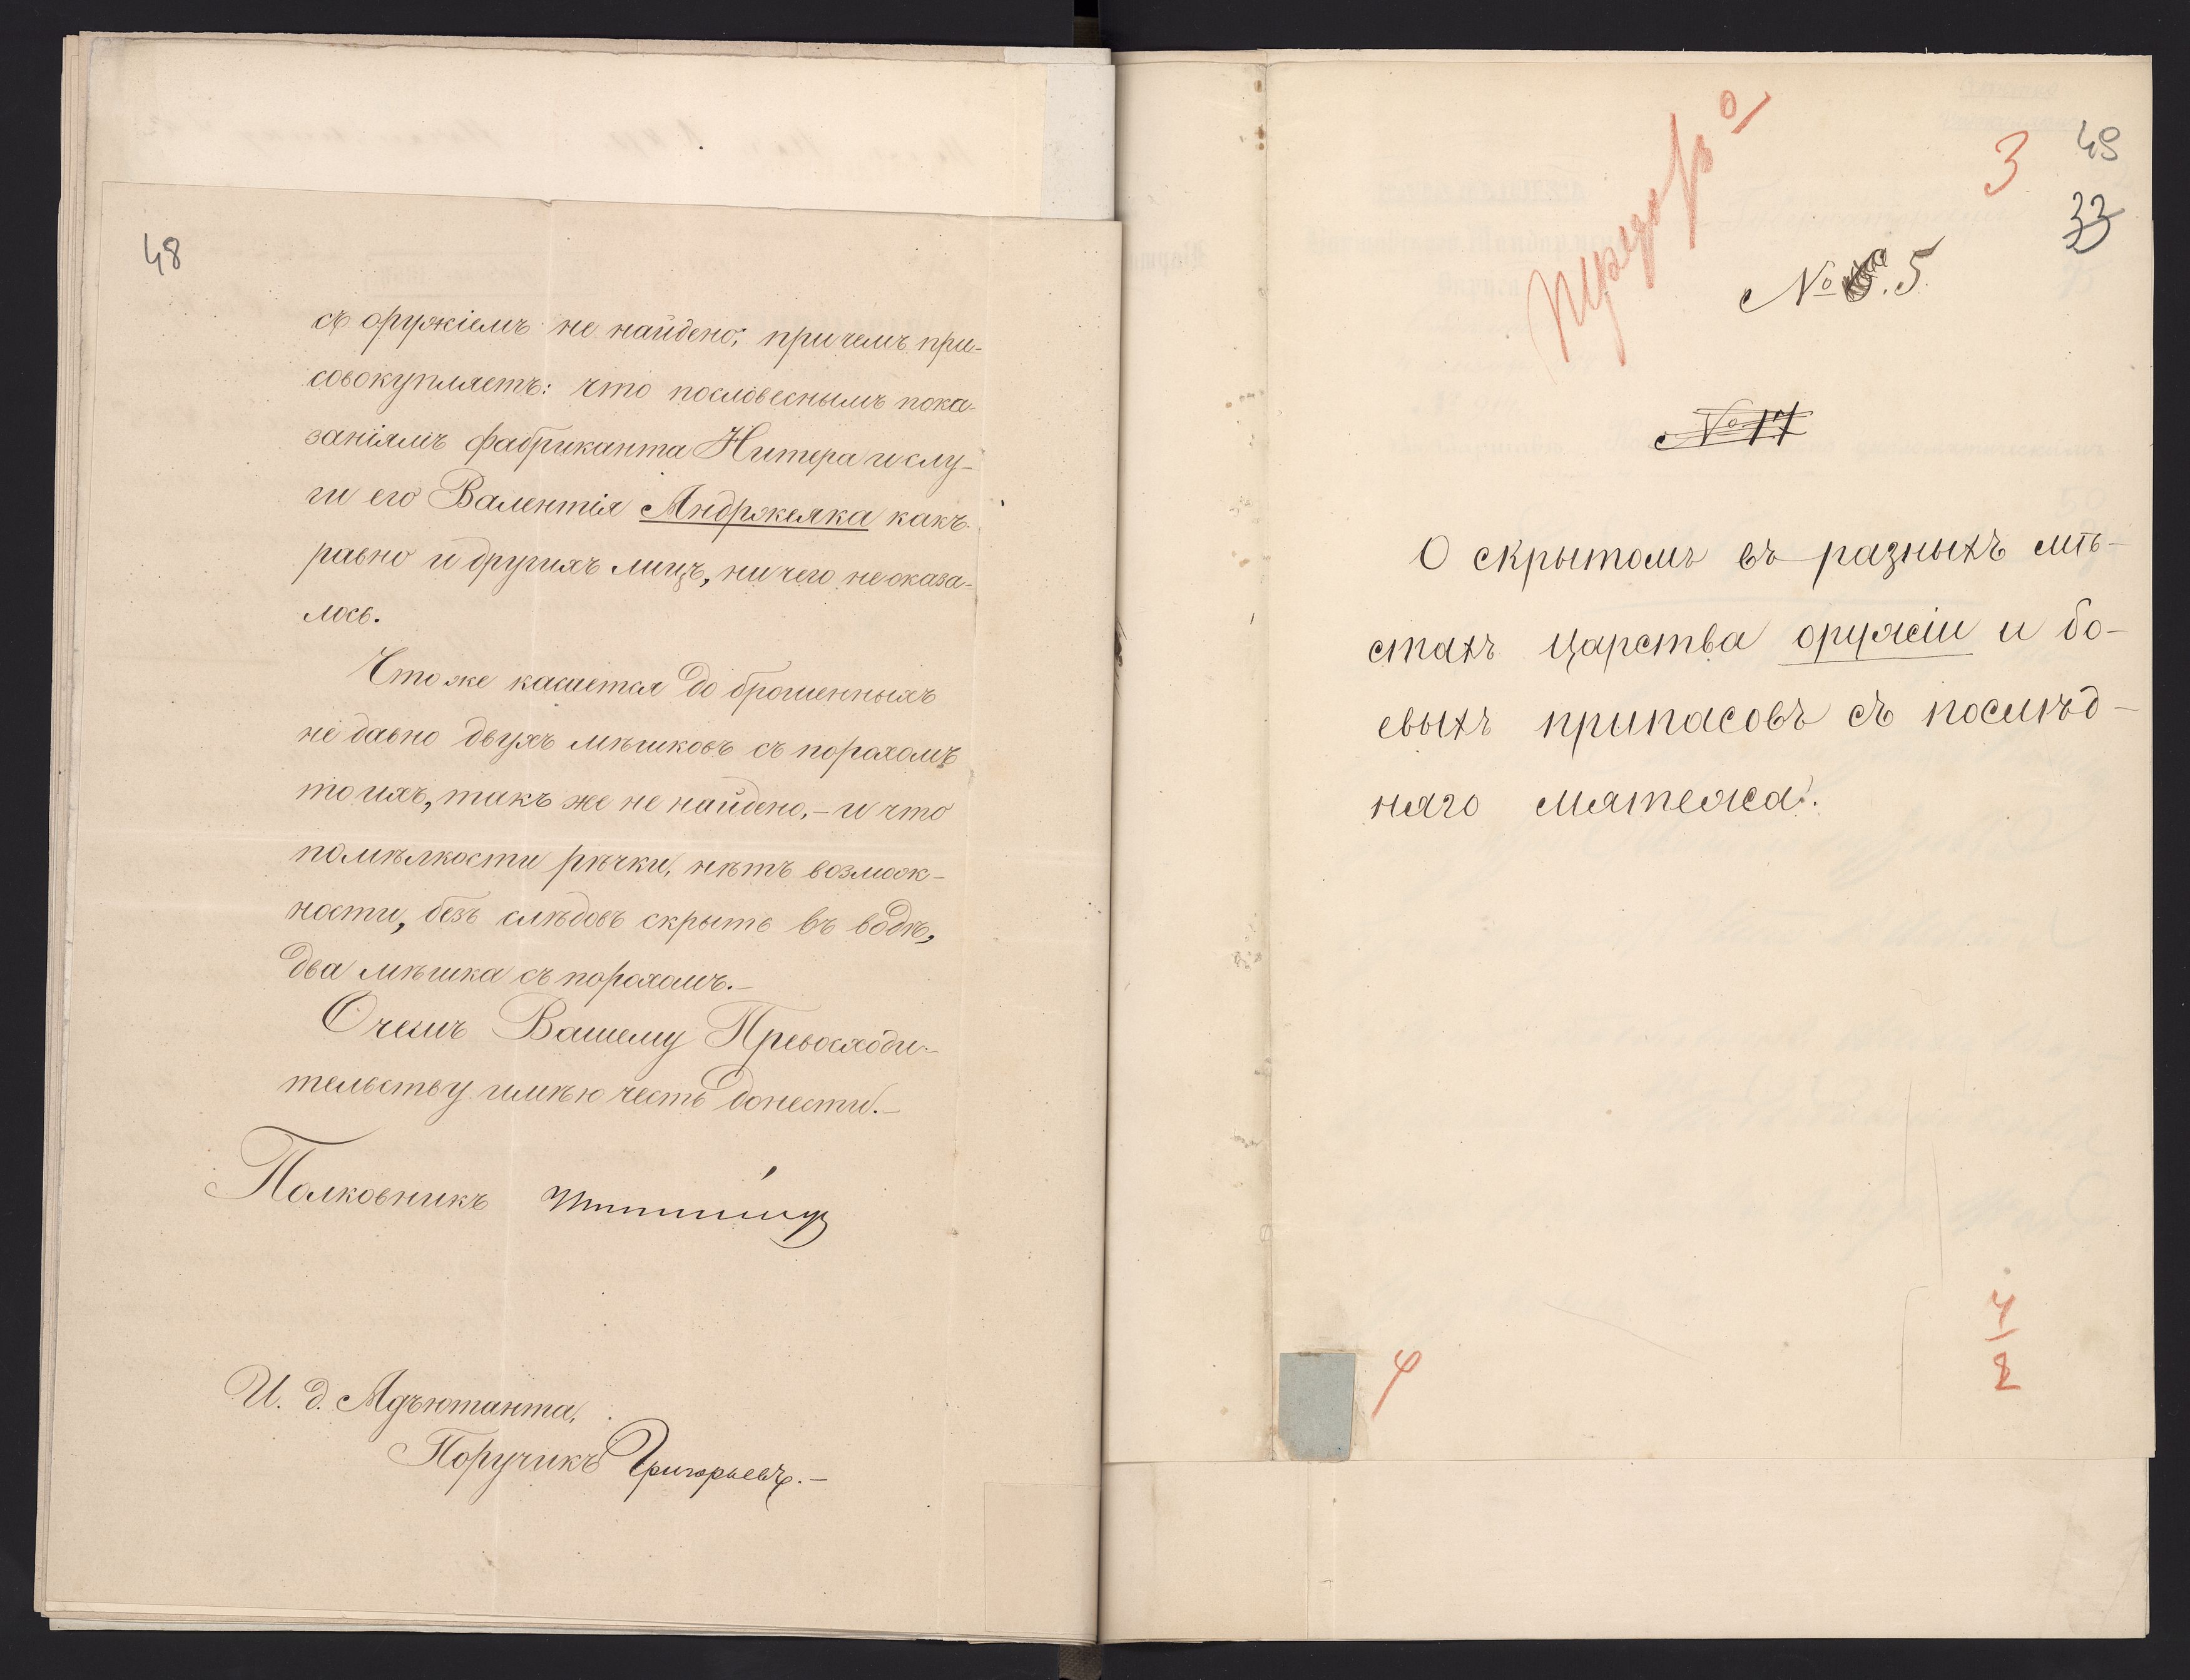 48
съ оружіемъ не найдено; причемъ при-
совокупляетъ: что пословеснымъ пока-
заніямъ фабриканта Нитера и слу-
ги его Валентія Андржеяка какъ
равно и другихъ лицъ, ничего не оказа-
лось.
Что же касается до брошенныхъ
не давно двухъ мѣшковъ съ порохомъ
то ихъ, такъ же не найдено, – и что
помѣлкости рѣчки, нѣтъ возмож-
ности, безъ слѣдовъ скрыть въ водѣ,
два мѣшка съ порохомъ. –
О чемъ Вашему Превосходи-
тельству имѣю честь донести. –
Полковникъ
И. д. Адъютанта,
Поручикъ Григорьевъ. –
3
49
33
№ 5.
№ 17
О скрытомъ въ разныхъ мѣ-
стахъ Царства оружіи и бо-
евыхъ припасовъ съ послѣд-
няго мятежа.
4
2